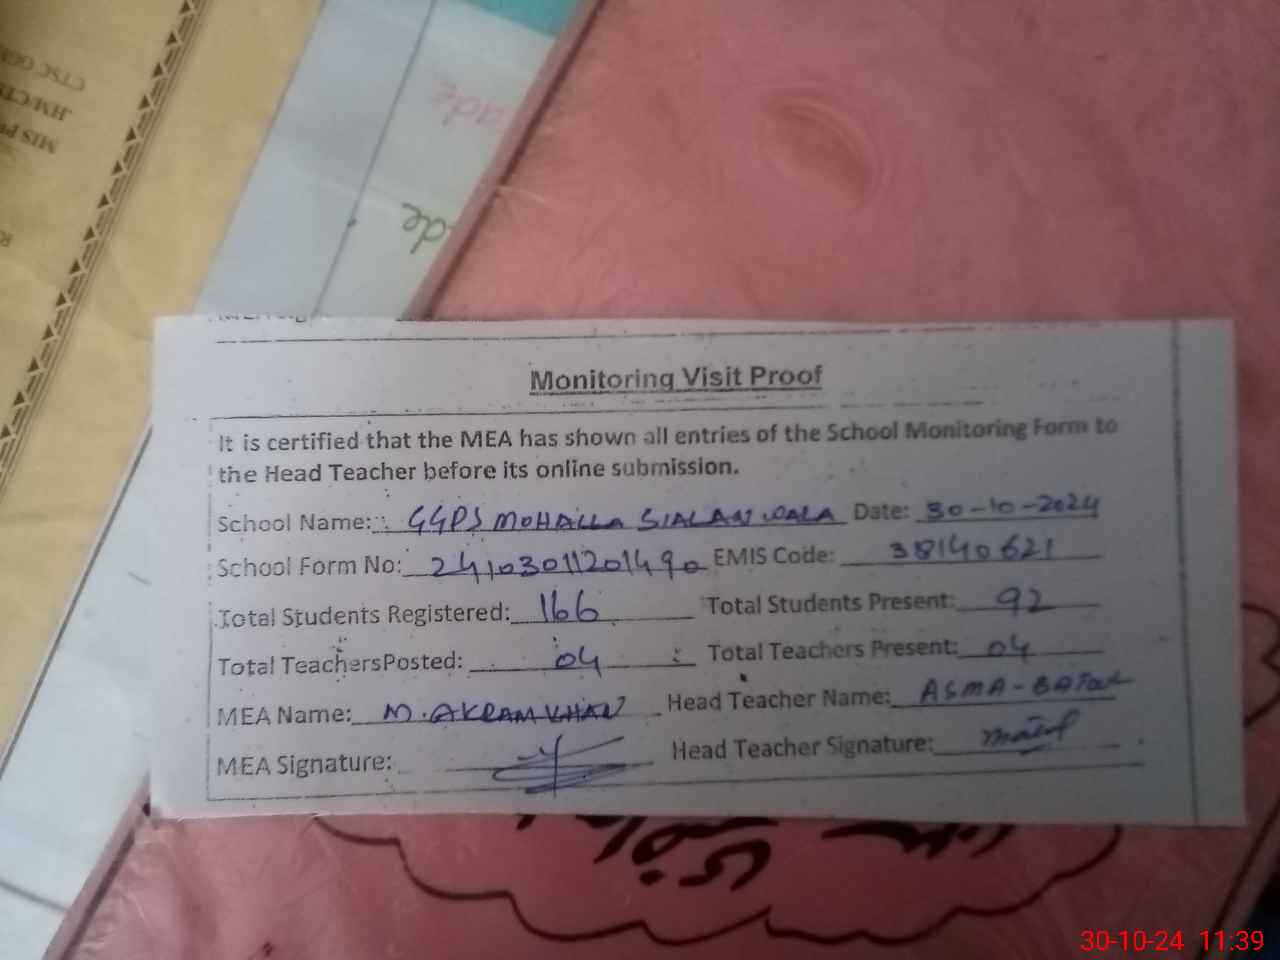 CTSC GEN
HM/CTS
MIS PE
ade
de
Monitoring Visit Proof
It is certified that the MEA has shown all entries of the School Monitoring Form to
the Head Teacher before its online submission.
School Name: GGPS MOHALLA SIALAN WALA Date: 30-10-2024
School Form No: 24103011201490 EMIS Code: 38140621
Total Students Registered: 166 Total Students Present: 92
Total TeachersPosted: 04 Total Teachers Present: 04
MEA Name: M. AKRAM KHAN Head Teacher Name: ASMA-BATOOL
MEA Signature: Head Teacher Signature:
30-10-24 11:39